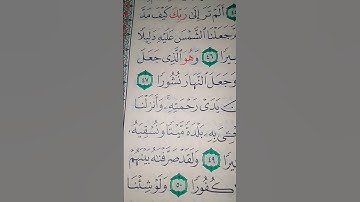 أَلَمْ تَرَ إِلَىٰ رَبِّكَ كَيْفَ مَدَّ
وَجَعَلْنَا ٱلشَّمْسَ عَلَيْهِ دَلِيلًا
يرًا ٤٦ وَهُوَ ٱلَّذِى جَعَلَ
وَجَعَلَ ٱلنَّهَارَ نُشُورًا ٤٧
يَدَىْ رَحْمَتِهِۦ ۚ وَأَنزَلْنَا
ـۧىَ بِهِۦ بَلْدَةً مَّيْتًا وَنُسْقِيَهُۥ
يرًا ٤٩ وَلَقَدْ صَرَّفْنَٰهُ بَيْنَهُمْ
كُفُورًا ٥٠ وَلَوْ شِئْنَا